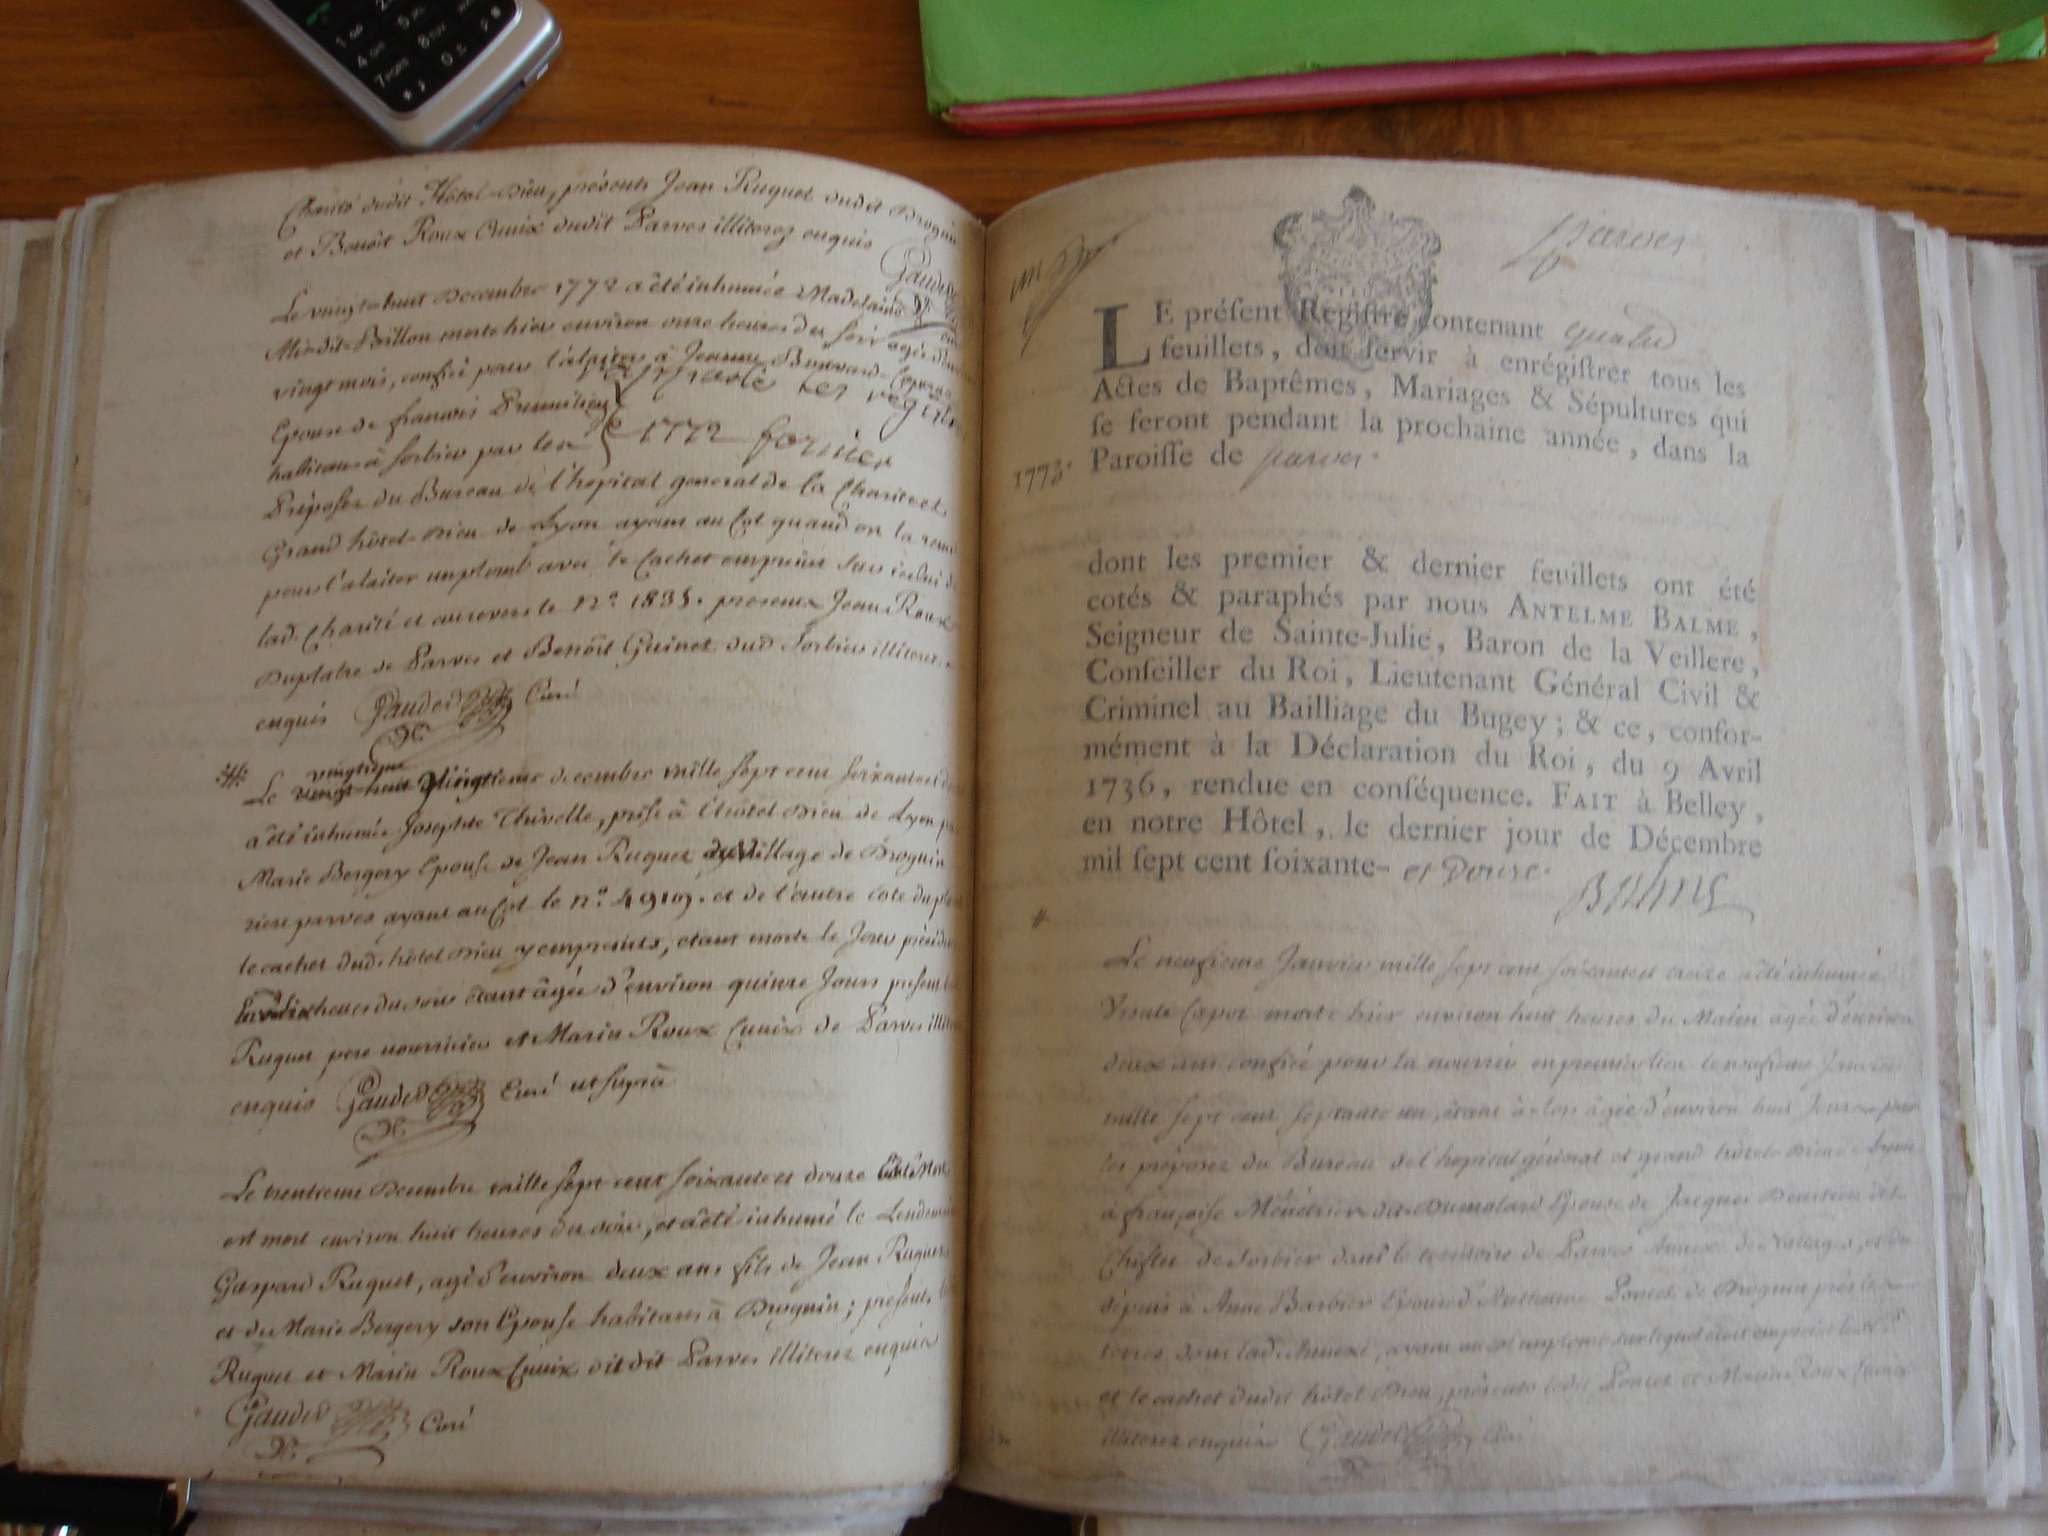 Charité dudit Hôtel-Dieu, présents Jean Ruquet dudit Brognin
et Benoît Roux Cunix dudit Parves illiterez enquis
Gaudet
Le vingt-huit Decembre 1772 a été inhumée Madelaine
dit Billon morte hier environ onze heures du soir agée d'environ
vingt mois, confiée pour l'alaiter à Jeanne
Epouse de francois
habitans à Sorbier par les
1772 fornier
Préposez du Bureau de l'hopital general de la Charité et
Grand hôtel-Dieu de Lyon ayant au Col quand on la remit
pour l'alaiter un plomb avec le Cachet empreint sur icelui de
lad. Charité et au revers le n.º 1835. presents Jean Roux
Duplatre de Parves et Benoît Guinet dud. Sorbier illiterez
enquis Gaudet Curé
Le vingtieme decembre mille sept cent soixante et douze
a été inhumée Josephte Thivelle, prise à l'hôtel Dieu de Lyon par
Marie Bergery Epouse de Jean Ruquet du Village de Brognin
riere parves ayant au Col le n.º 4919. et de l'autre côté du plomb
le cachet dud. hôtel Dieu y empreints, etant morte le Jour précédent
dix heures du soir étant âgée d'environ quinze Jours présents
Ruquet pere nourricier et Marin Roux Cunix de Parves illiterez
enquis Gaudet Curé ut supra
Le trentieme Decembre mille sept cent soixante et douze
est mort environ huit heures du soir, et a été inhumé le Lendemain
Gaspard Ruquet, agé d'environ deux ans fils de Jean Ruquet
et de Marie Bergery son Epouse habitans à Brognin; présents
Ruquet et Marin Roux Cunix dudit Parves illiterez enquis
Gaudet Curé
parves
LE préſent Regiſtre contenant quatre
feuillets, doit ſervir à enrégiſtrer tous les
Actes de Baptêmes, Mariages & Sépultures qui
ſe feront pendant la prochaine année, dans la
1773. Paroiſſe de parves.
dont les premier & dernier feuillets ont été
cotés & paraphés par nous ANTELME BALME,
Seigneur de Sainte-Julie, Baron de la Veillere,
Conſeiller du Roi, Lieutenant Général Civil &
Criminel au Bailliage du Bugey; & ce, confor-
mément à la Déclaration du Roi, du 9 Avril
1736, rendue en conſéquence. FAIT à Belley,
en notre Hôtel, le dernier jour de Décembre
mil ſept cent ſoixante- et Douze.
Balme
Le neufieme Janvier mille sept cent soixante et treize a été inhumé
morte hier environ huit heures du Matin agée d'environ
deux ans confiée pour la nourrir en premier lieu le neufieme Janvier
mille sept cent septante un, étant alors âgée d'environ huit Jours par
les préposez du Bureau de l'hopital général et grand hôtel-Dieu de Lyon
à françoise Epouse de Jacques
de Sorbier dans le territoire de Parves Annexe de et
depuis à Anne Barbier Epouse d'Anthelme Poncet de Brognin
et le cachet dudit hôtel Dieu, présents ledit Poncet et Marin Roux Cunix
illiterez enquis Gaudet Curé